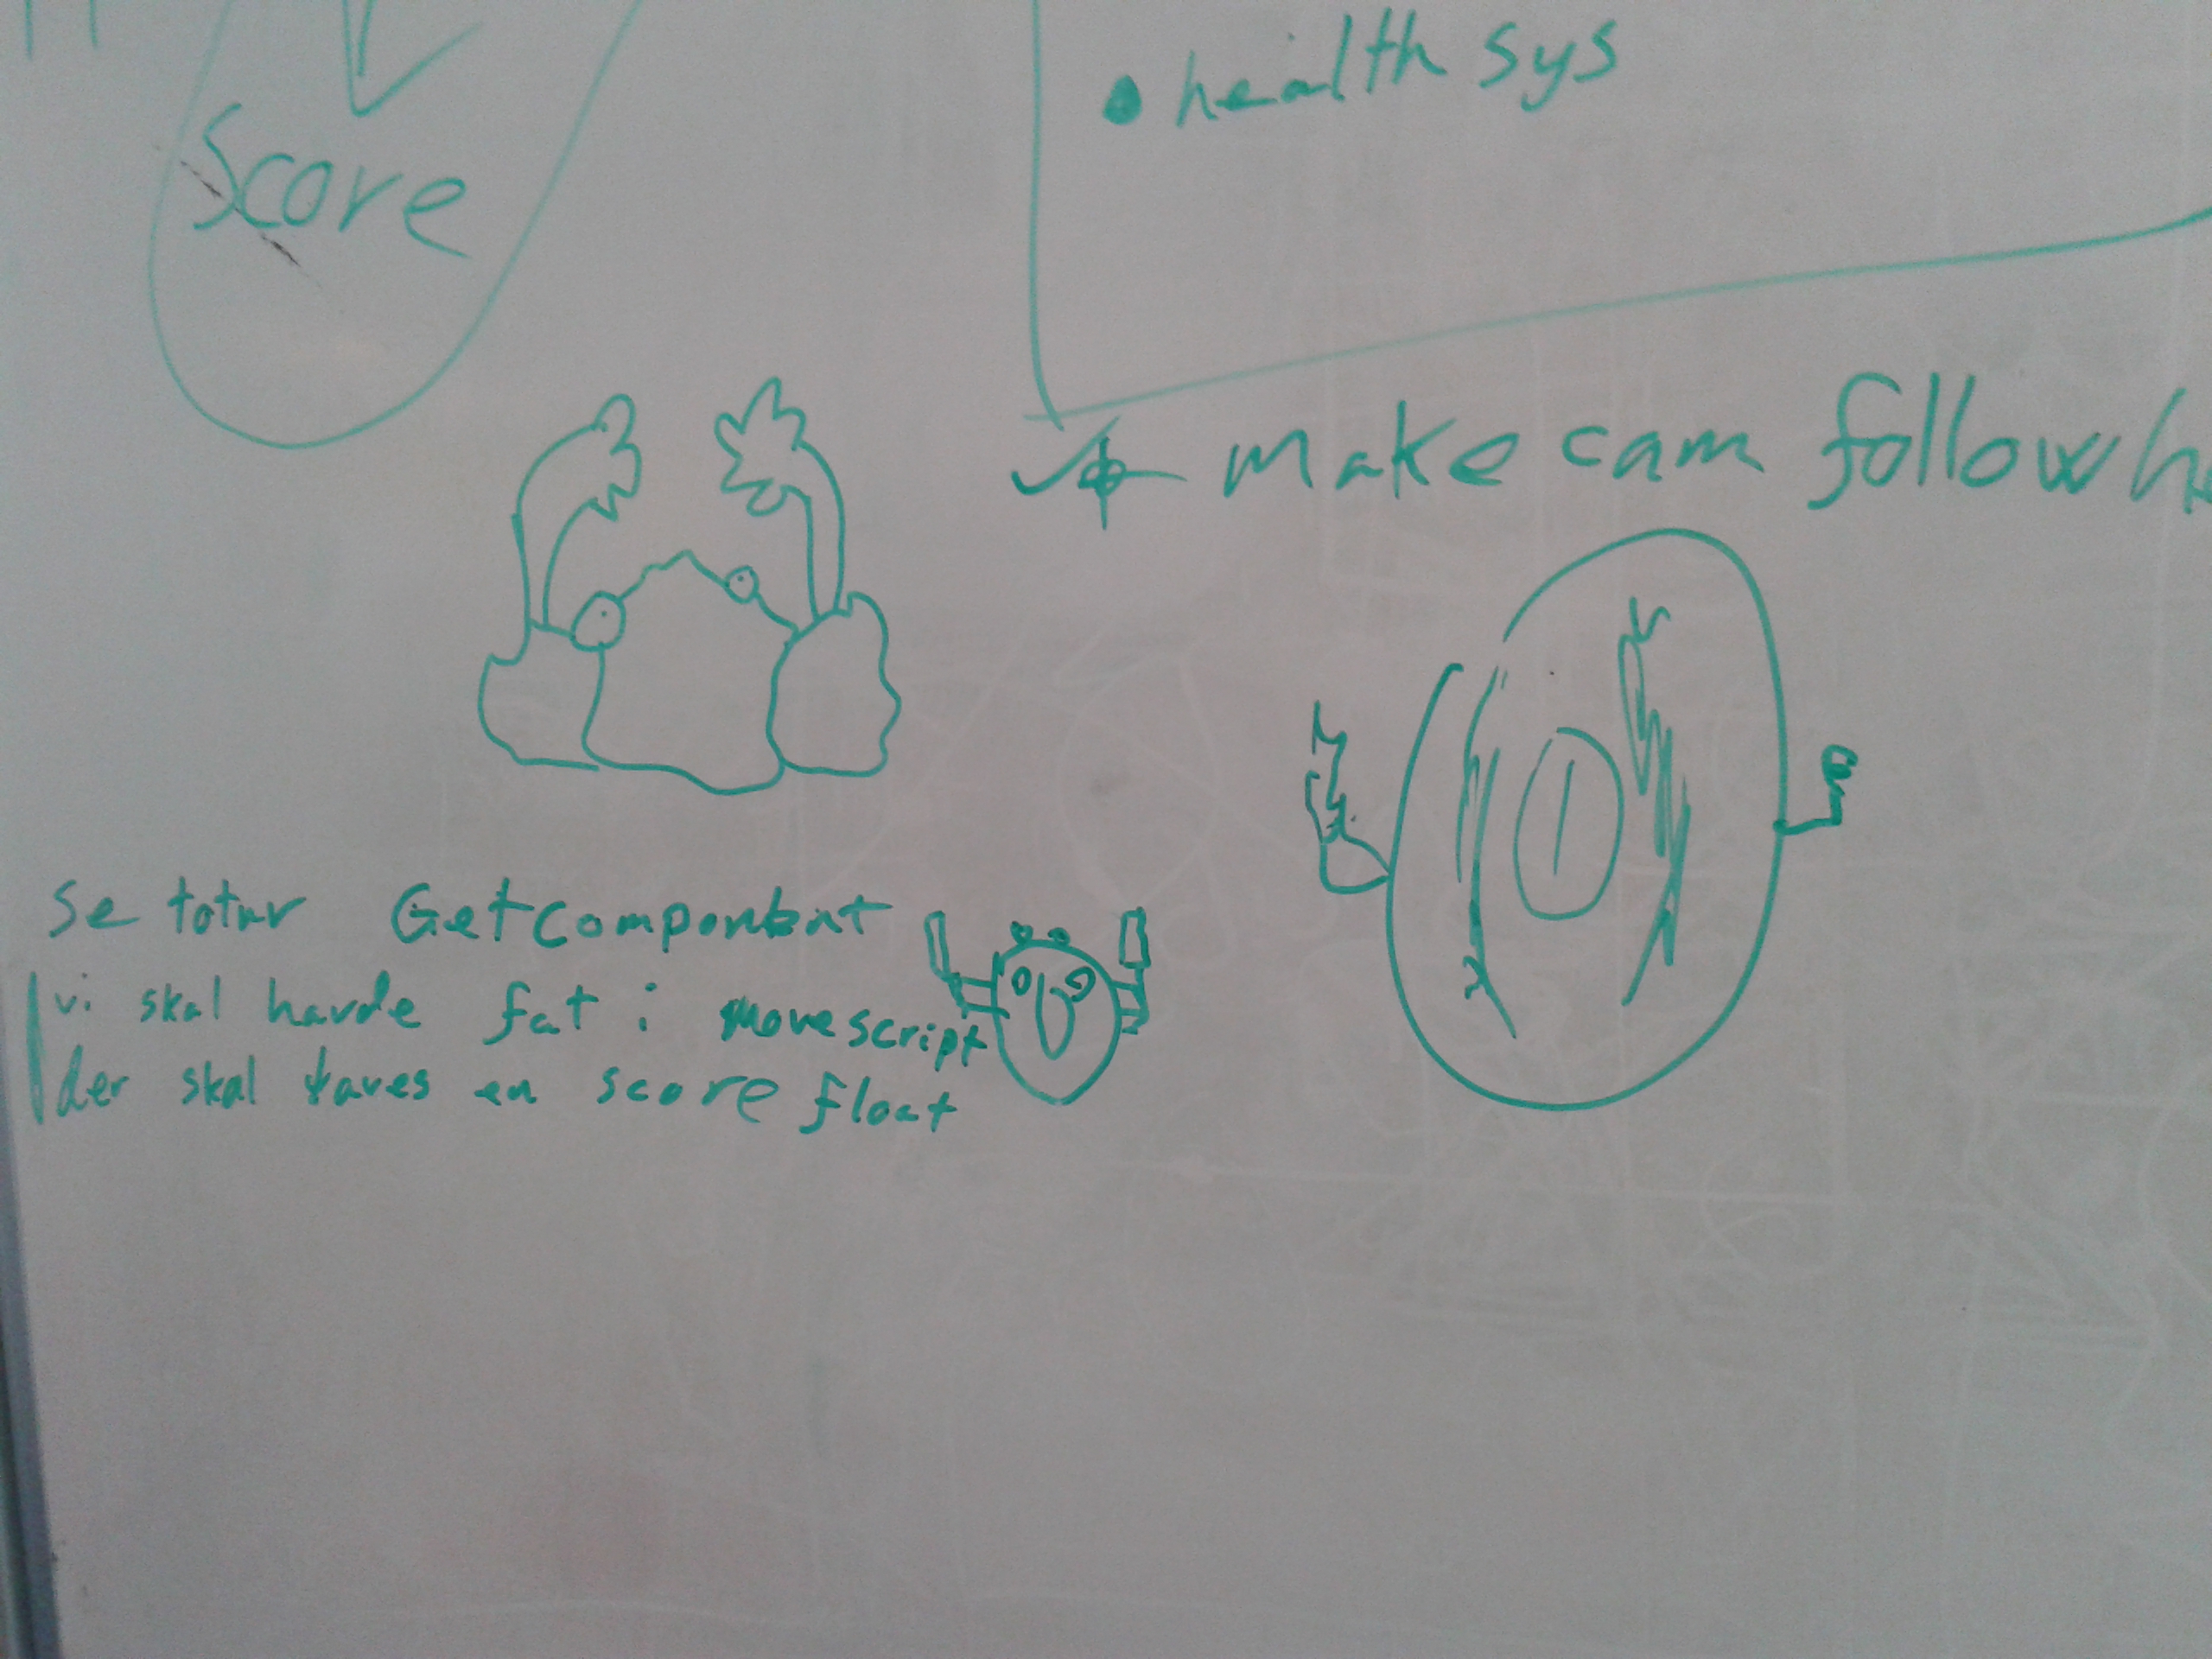 Score
• health sys
make cam follow
se totur Getcomponent
vi skal havde fat i movescript
der skal laves en score float